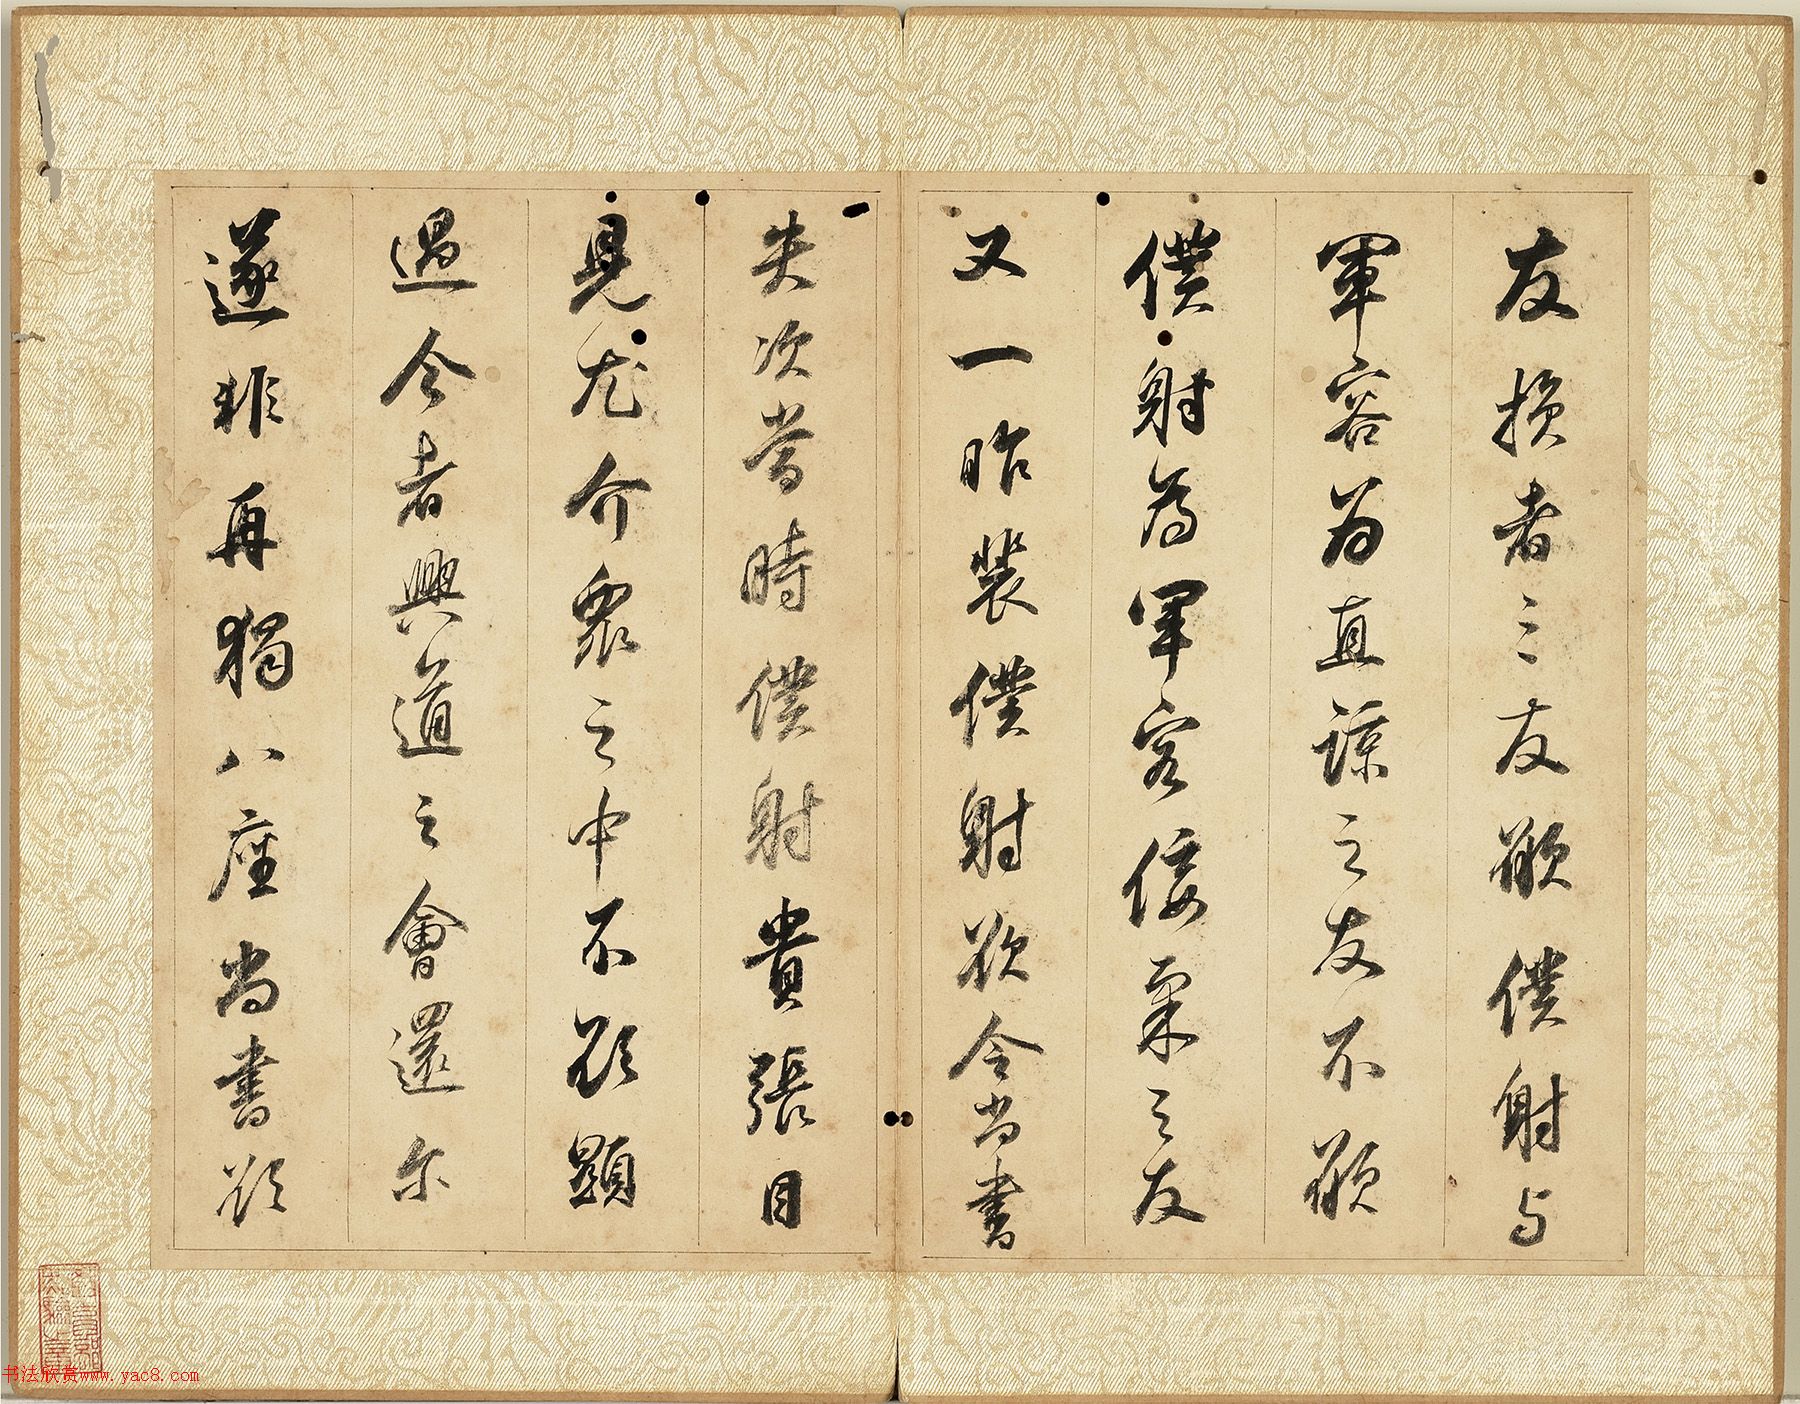 友損者三友願僕射与
軍容為直諒之友不願
僕射為軍容佞柔之友
又一昨裴僕射欲令尚書
失次當時僕射貴張目
見尤介眾之中不欲顯
過今者興道之會還尔
遂非再猲八座尚書欲
教育部
點驗之章
书法欣赏www.yac8.com